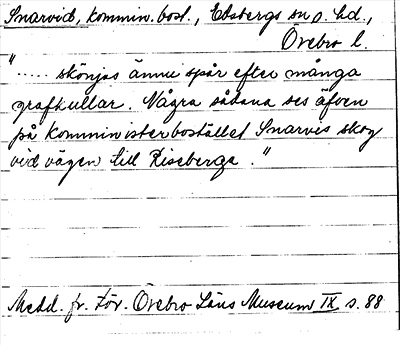 Snarvid, kommin. bost., Edsbergs sn o. hd.,
Örebro l.
"..... skönjas ännu spår efter många
grafkullar. Några sådana ses äfven
på komministerbostället Snarves skog
vid vägen till Riseberga."
Medd. fr. För. Örebro Läns Museum IX s. 88